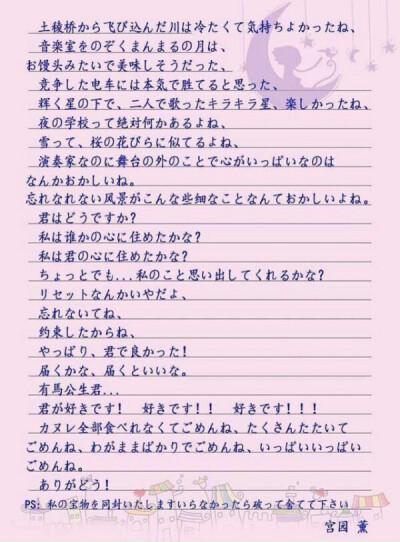 土稜桥から飞び込んだ川は冷たくて気持ちよかったね、
音楽室をのぞくまんまるの月は、
お馒头みたいで美味しそうだった、
竞争した电车には本気で胜てると思った、
辉く星の下で、二人で歌ったキラキラ星、楽しかったね、
夜の学校って绝対何かあるよね、
雪って、桜の花びらに似てるよね、
演奏家なのに舞台の外のことで心がいっぱいなのは
なんかおかしいね。
忘れなれない风景がこんな些细なことなんておかしいよね。
君はどうですか?
私は谁かの心に住めたかな?
私は君の心に住めたかな?
ちょっとでも...私のこと思い出してくれるかな?
リセットなんかいやだよ、
忘れないてね、
约束したからね、
やっぱり、君で良かった!
届くかな、届くといいな。
有馬公生君...
君が好きです! 好きです!! 好きです!!!
カヌレ全部食べれなくてごめんね、たくさんたたいて
ごめんね、わがままばかりでごめんね、いっぱいいっぱい
ごめんね。
ありがどう!
PS: 私の宝物を同封いたしますいらなかったら破って舎てて下さい
宫园 薰